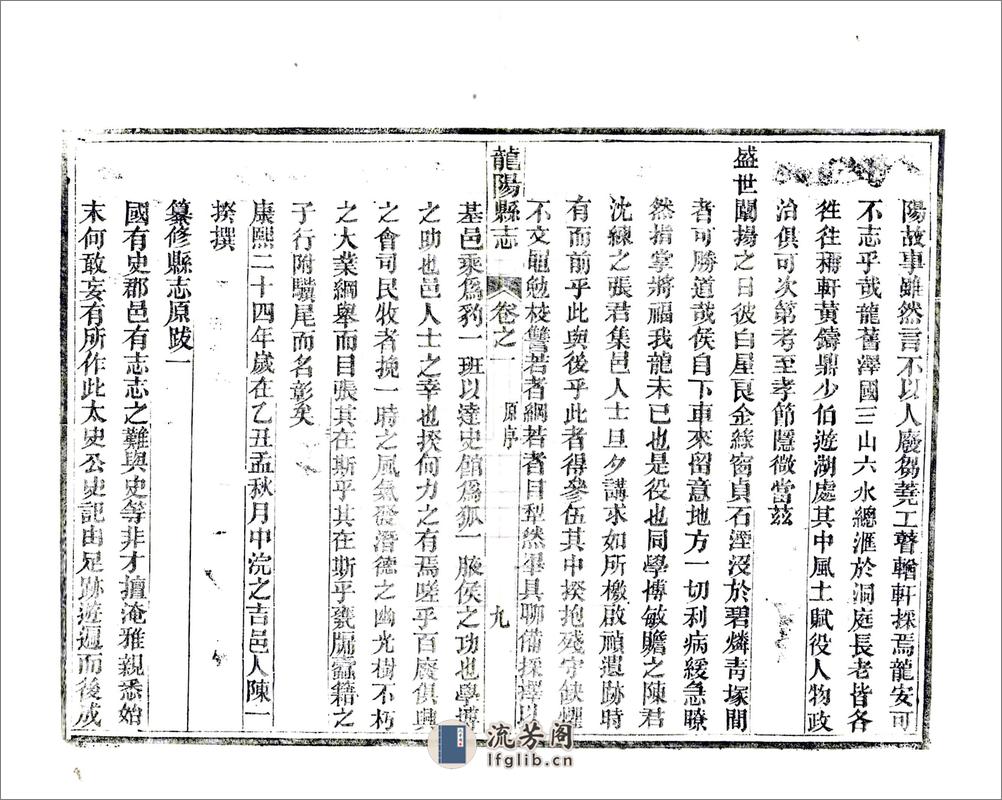 陽故事雖然言不以人廢芻蕘工瞽輶軒採焉龍安可
不志乎哉龍舊澤國三山六水總滙於洞庭長老皆各
徃徃稱軒黃鑄鼎少伯遊湖處其中風土賦役人物政
治俱可次第考至孝節隱微當茲
盛世闡揚之日彼白屋良金綠窗貞石湮沒於碧燐靑塚間
者可勝道哉侯自下車來留意地方一切利病緩急瞭
然指掌將福我龍未已也是役也同學博敏贍之陳君
沈練之張君集邑人士旦夕講求如所檄啟禎遺跡時
有而前乎此與後乎此者得參伍其中揆抱殘守缺煙
不文黽勉校讐若者綱若者目犁然畢具聊備採擇以
龍陽縣志 卷之一 原序 九
基邑乘爲豹一班以達史館爲狐一腋侯之功也學博
之助也邑人士之幸也揆何力之有焉嗟乎百廢俱興
之會司民牧者挽一時之風氣發潛德之幽光樹不朽
之大業綱舉而目張其在斯乎其在斯乎甕牖蠹籍之
子行附驥尾而名彰矣
康熙二十四年歲在乙丑孟秋月中浣之吉邑人陳一
揆撰
纂修縣志原跋一
國有史郡邑有志志之難與史等非才擅淹雅親悉始
末何敢妄有所作此太史公史記由足跡遊遍而後成
流芳阁
lfglib.cn